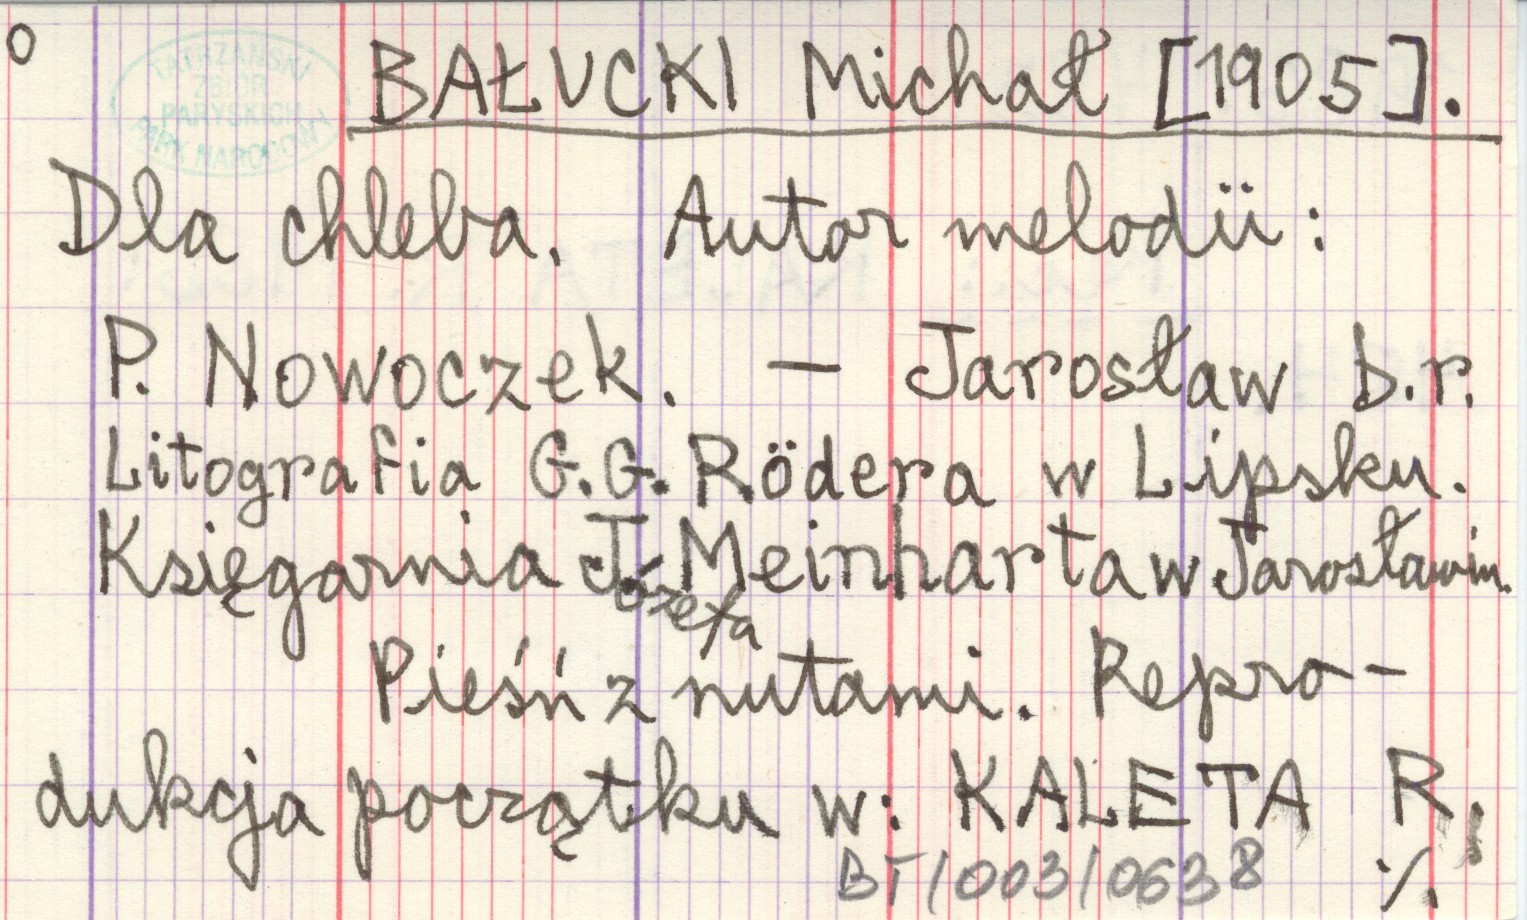 o
TATRZAŃSKI
ZBIÓR
PARYSKICH
PARK NARODOWY
BAŁUCKI Michał [1905].
Dla chleba. Autor melodii:
P. Nowoczek. – Jarosław b.r.
Litografia G.G. Rödera w Lipsku.
Księgarnia J. Meinharta w Jarosławiu.
Józefa
Pieśń z nutami. Repro-
dukcja początku w: KALETA R.
BT/003/0638 ./.